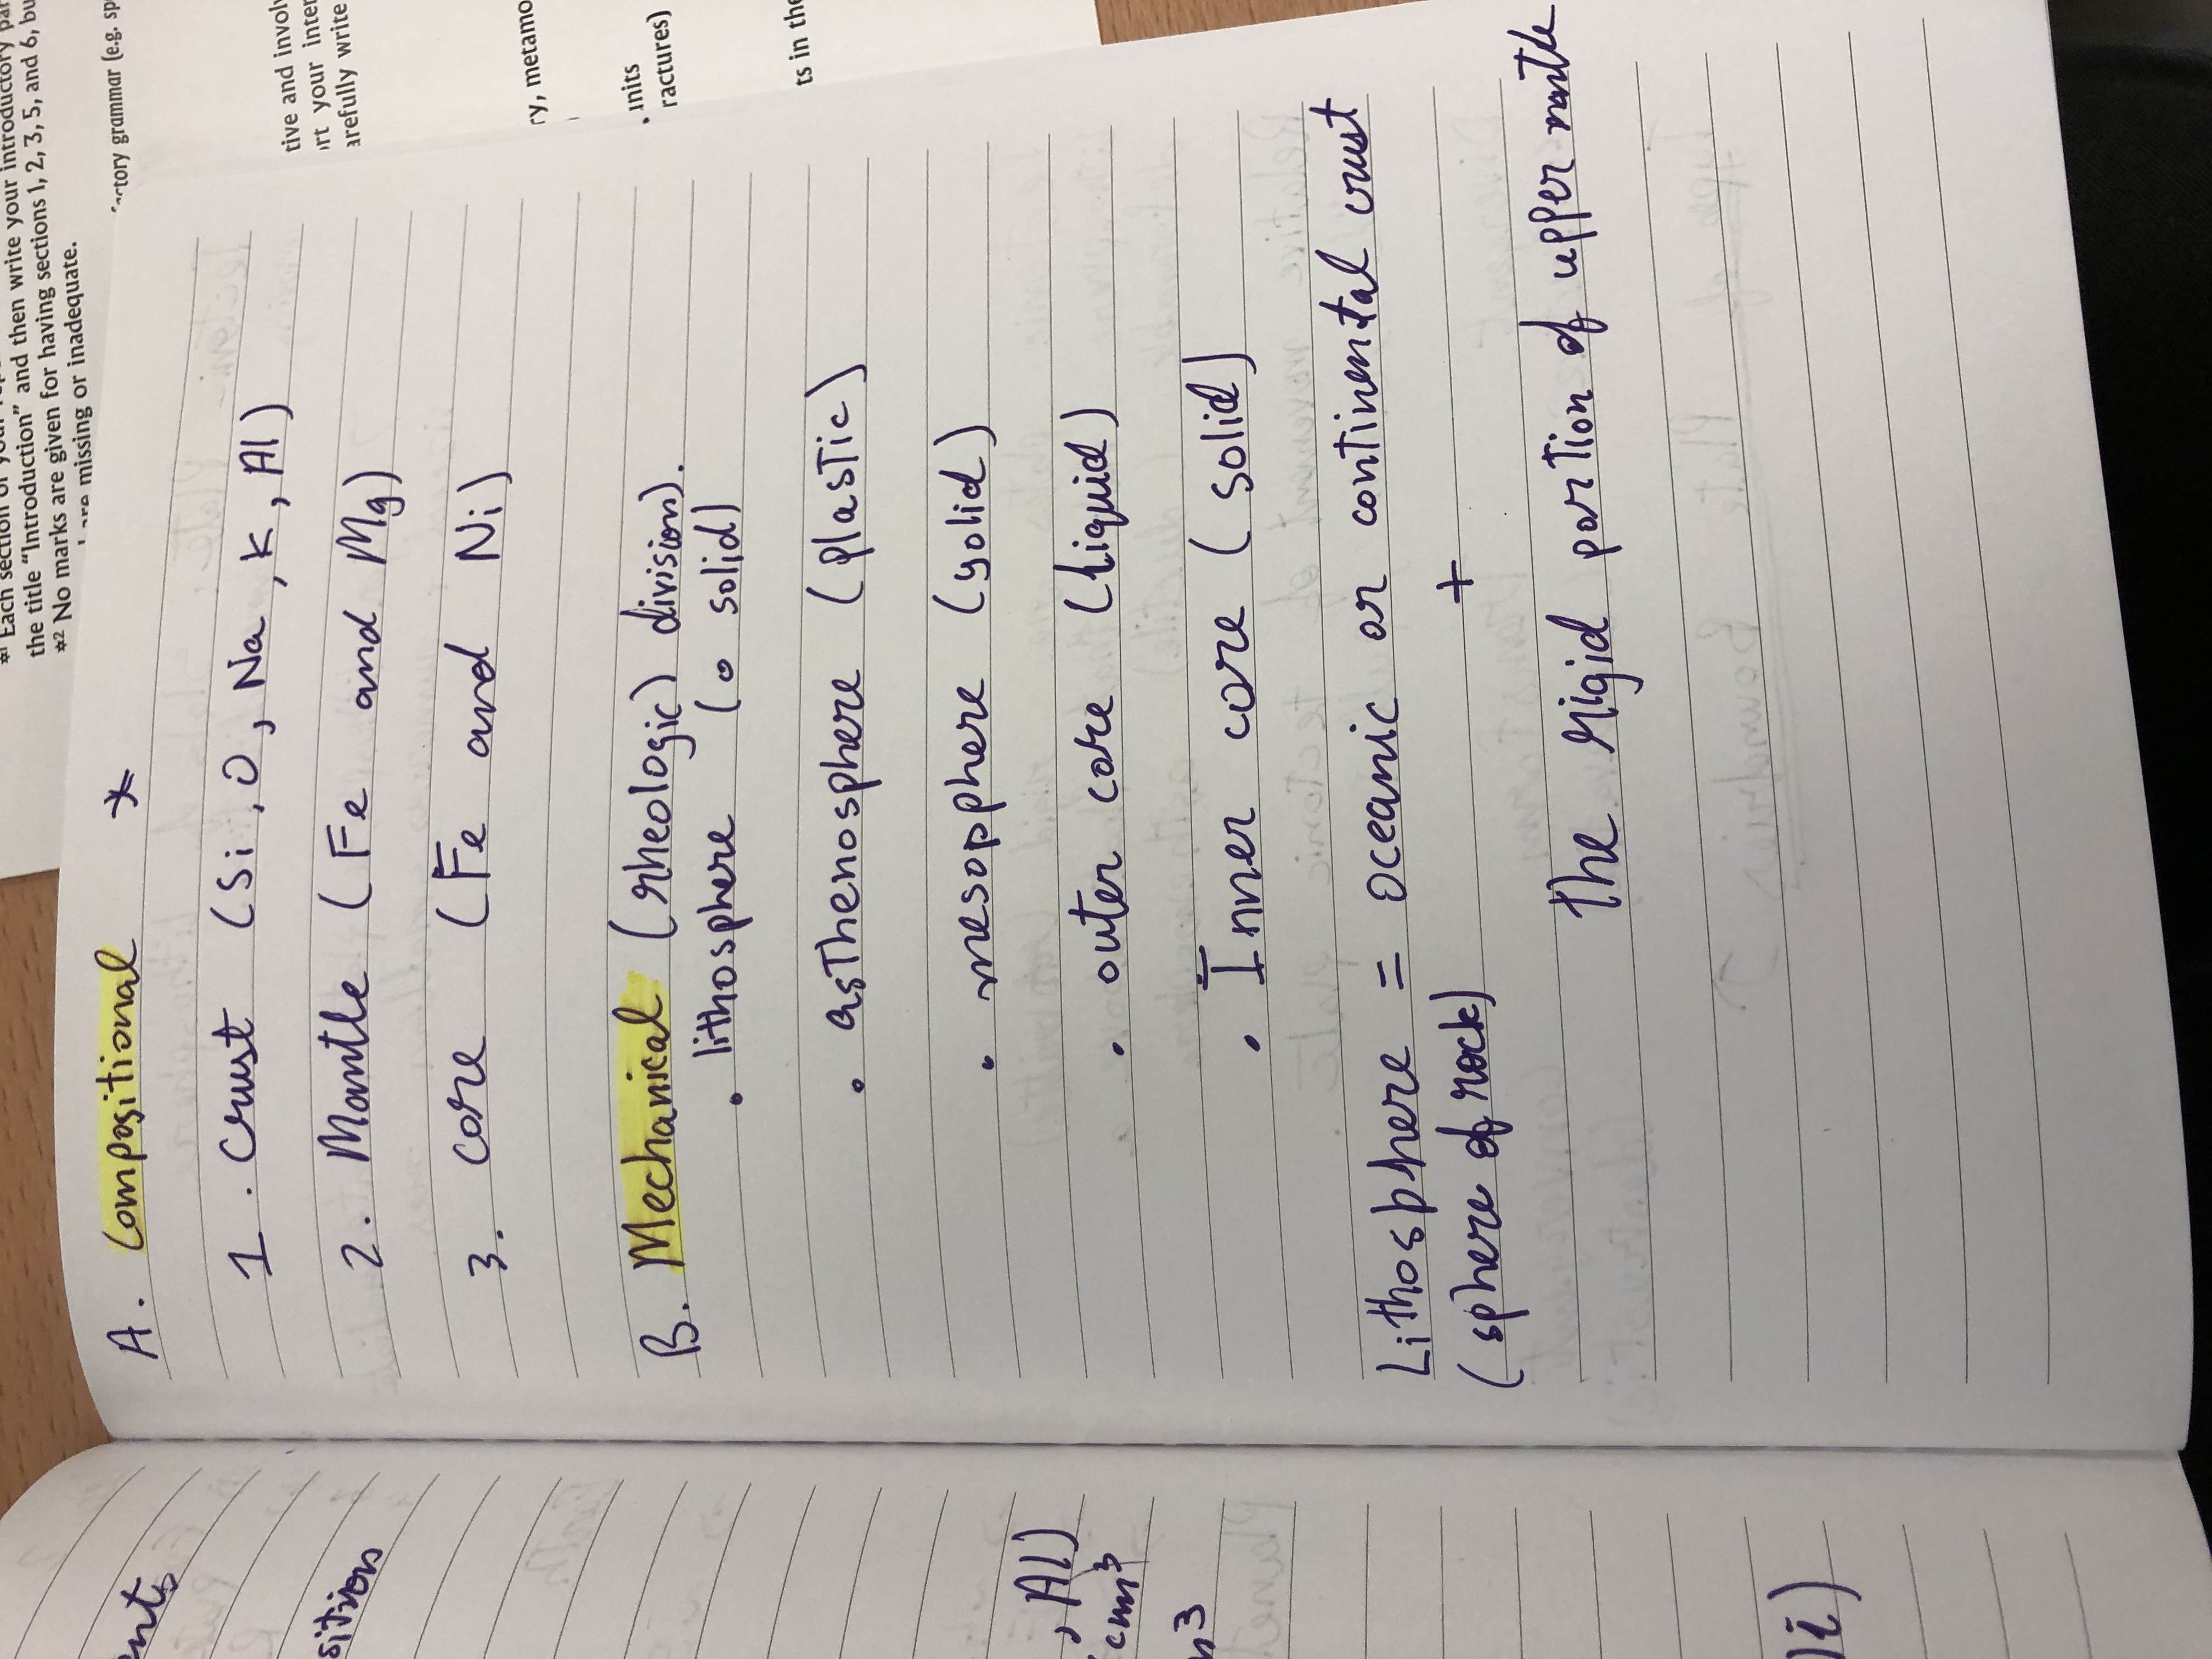 *1 Each section of your
the title "Introduction" and then write your introductory par
*2 No marks are given for having sections 1, 2, 3, 5, and 6, bu
are missing or inadequate.
ctory grammar (e.g. sp
tive and involv
rt your inter
arefully write
ry, metamo
units
ractures)
ts in the
A. Compositional *
1. Crust (Si, O, Na, K, Al)
2. Mantle (Fe and Mg)
3. core (Fe and Ni)
B. Mechanical (rheologic) division).
• lithosphere (o solid)
• asthenosphere (plastic)
• mesopphere (solid)
• outer core (liquid)
• Inner core (solid)
Lithosphere = oceanic or continental crust
(sphere of rock) +
The rigid portion of upper mantle
ents
sitions
, Al)
cm3
m3
Ni)